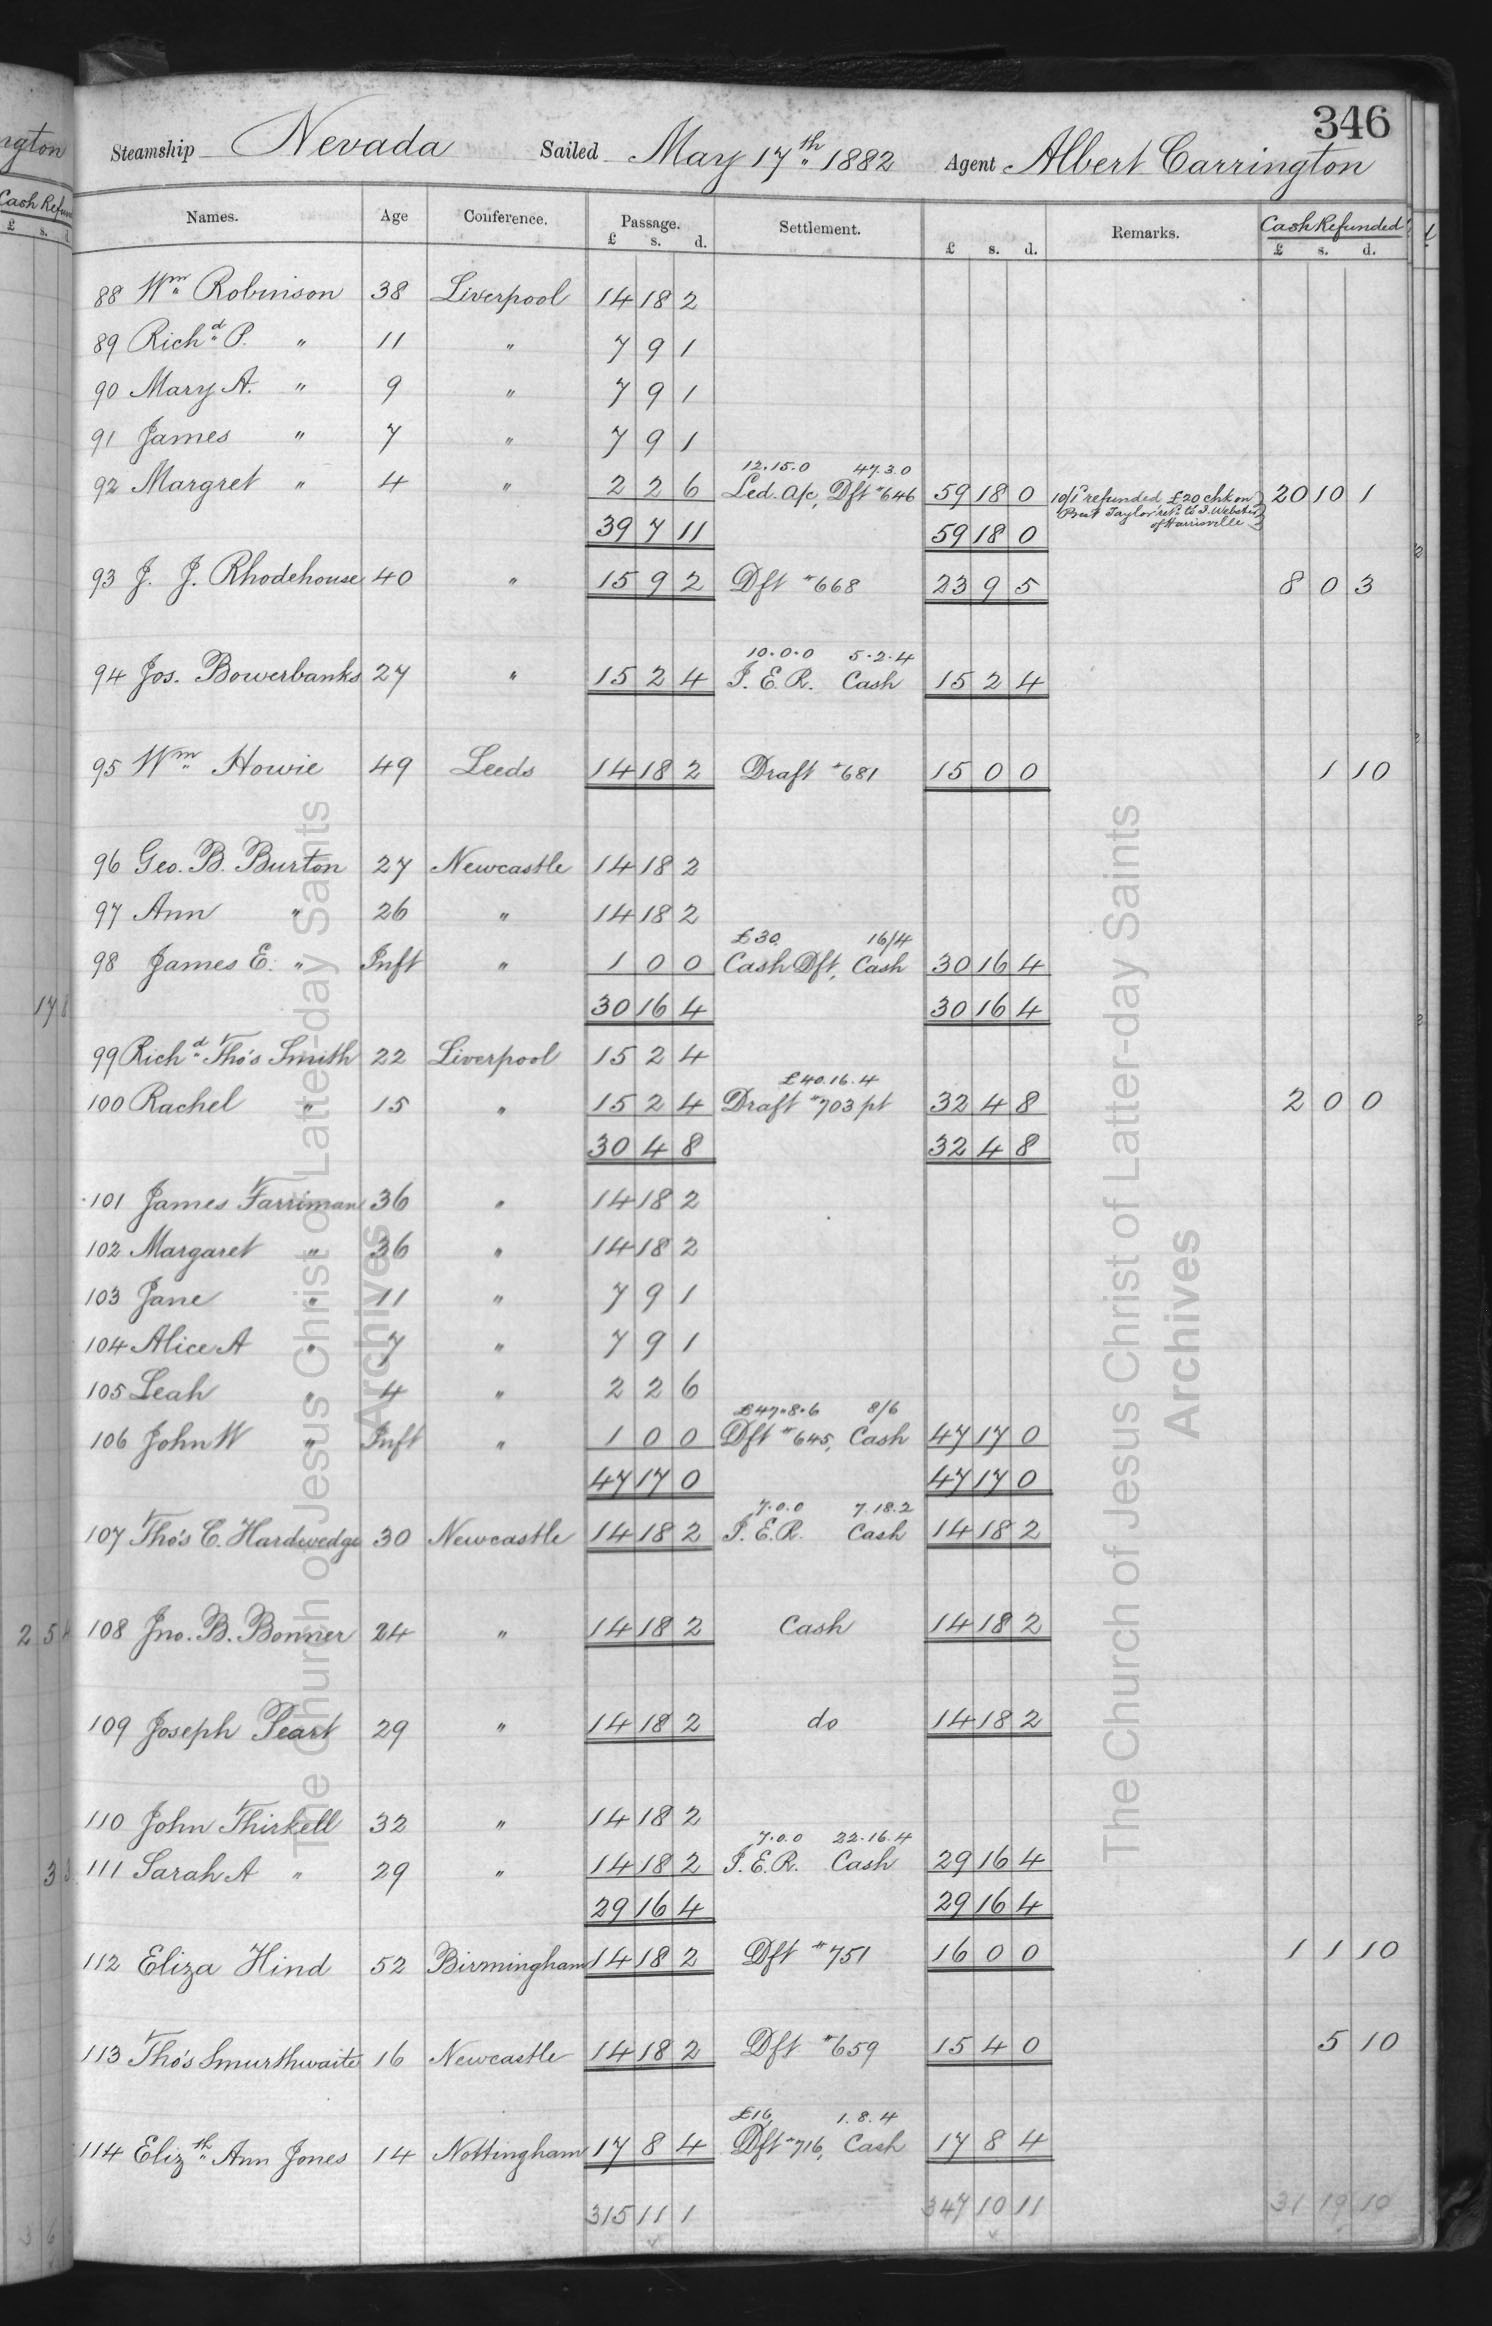 346
Steamship Nevada Sailed May 17th 1882 Agent Albert Carrington
Names. Age Conference. Passage. Settlement. Remarks. Cash Refunded
£ s. d. £ s. d. £ s. d.
88 Wm Robinson 38 Liverpool 14 18 2
89 Richd P. " 11 " 7 9 1
90 Mary A. " 9 " 7 9 1
91 James " 7 " 7 9 1
12.15.0 47.3.0
92 Margret " 4 " 2 2 6 Led. a/c, Dft #646 59 18 0 10/1 refunded £20 chk on 20 10 1
Prest Taylor retd to J. Webster
of Harrisville
39 7 11 59 18 0
93 J. J. Rhodehouse 40 " 15 9 2 Dft #668 23 9 5 8 0 3
10.0.0 5.2.4
94 Jos. Bowerbanks 27 " 15 2 4 I.E.R. Cash 15 2 4
95 Wm Howie 49 Leeds 14 18 2 Draft #681 15 0 0 1 10
96 Geo. B. Burton 27 Newcastle 14 18 2
97 Ann " 26 " 14 18 2
£30 16/4
98 James E. " Inft " 1 0 0 Cash Dft, Cash 30 16 4
30 16 4 30 16 4
99 Richd Tho's Smith 22 Liverpool 15 2 4
£40.16.4
100 Rachel " 15 " 15 2 4 Draft #703 pt 32 4 8 2 0 0
30 4 8 32 4 8
101 James Farriman 36 " 14 18 2
102 Margaret " 36 " 14 18 2
103 Jane " 11 " 7 9 1
104 Alice A " 7 " 7 9 1
105 Leah " 4 " 2 2 6
£47.8.6 8/6
106 John W " Inft " 1 0 0 Dft #645, Cash 47 17 0
47 17 0 47 17 0
7.0.0 7.18.2
107 Tho's C. Hardwedge 30 Newcastle 14 18 2 I.E.R. Cash 14 18 2
108 Jno. B. Bonner 24 " 14 18 2 Cash 14 18 2
109 Joseph Peart 29 " 14 18 2 do 14 18 2
110 John Thirkell 32 " 14 18 2
7.0.0 22.16.4
111 Sarah A " 29 " 14 18 2 I.E.R. Cash 29 16 4
29 16 4 29 16 4
112 Eliza Hind 52 Birmingham 14 18 2 Dft #751 16 0 0 1 1 10
113 Tho's Smurthwaite 16 Newcastle 14 18 2 Dft #659 15 4 0 5 10
£16 1.8.4
114 Elizth Ann Jones 14 Nottingham 17 8 4 Dft #716, Cash 17 8 4
315 11 1 347 10 11 31 19 10
The Church of Jesus Christ of Latter-day Saints
Archives
The Church of Jesus Christ of Latter-day Saints
Archives